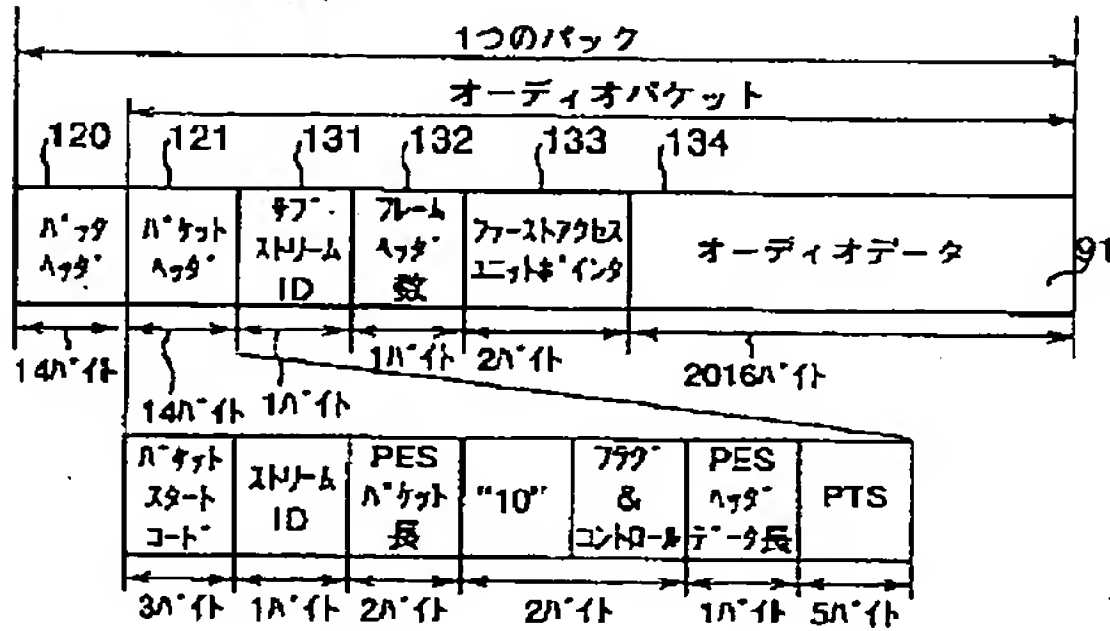 1つのパック
オーディオパケット
120
121
131
132
133
134
パック
ヘッダ
パケット
ヘッダ
サブ
ストリーム
ID
フレーム
ヘッダ
数
ファーストアクセス
ユニットポインタ
オーディオデータ
91
14バイト
14バイト
1バイト
1バイト
2バイト
2016バイト
パケット
スタート
コード
ストリーム
ID
PES
パケット
長
“10”
フラグ
&
コントロール
PES
ヘッダ
データ長
PTS
3バイト
1バイト
2バイト
2バイト
1バイト
5バイト